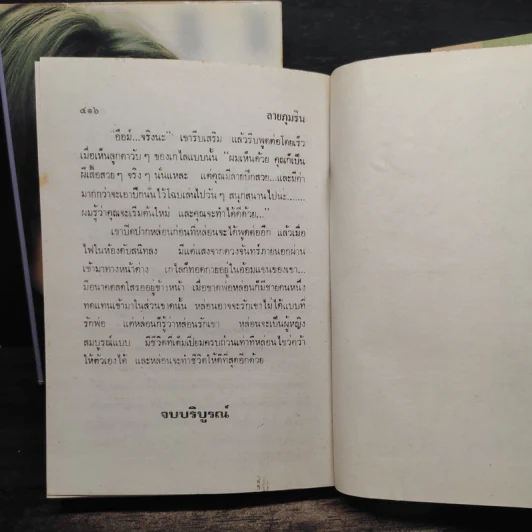 ๔๑๖ ลายภุมริน
"อืมม์...จริงนะ" เขารีบเสริม แล้วรีบพูดต่อโดยเร็ว
เมื่อเห็นลูกตาวับๆ ของเกไลแบบนั้น "ผมเห็นด้วย คุณก็เป็น
ผีเสื้อสวยๆ จริงๆ นั่นแหละ แต่คุณมีลายปีกสวย...และมีค่า
มากกว่าจะเอาปีกนั้นไว้โฉบเล่นไปวันๆ สนุกสนานไปนะ.......
ผมรู้ว่าคุณจะเริ่มต้นใหม่ และคุณจะทำได้ดีด้วย..."
เขาปิดปากหล่อนก่อนที่หล่อนจะได้พูดต่ออีก แล้วเมื่อ
ไฟในห้องดับสนิทลง มีแต่แสงจากดวงจันทร์ภายนอกผ่าน
เข้ามาทางหน้าต่าง เกไลก็ทอดกายอยู่ในอ้อมแขนของเขา...
มีอนาคตสดใสรออยู่ข้างหน้า เมื่อขาดพ่อหล่อนก็มีชายคนหนึ่ง
ทดแทนเข้ามาในส่วนขาดนั้น หล่อนอาจจะรักเขาไม่ได้แบบที่
รักพ่อ แต่หล่อนก็รู้ว่าหล่อนรักเขา หล่อนจะเป็นผู้หญิง
สมบูรณ์แบบ มีชีวิตที่เต็มเปี่ยมครบถ้วนเท่าที่หล่อนไขว่คว้า
ให้ตัวเองได้ และหล่อนจะทำชีวิตให้ดีที่สุดอีกด้วย
จบบริบูรณ์